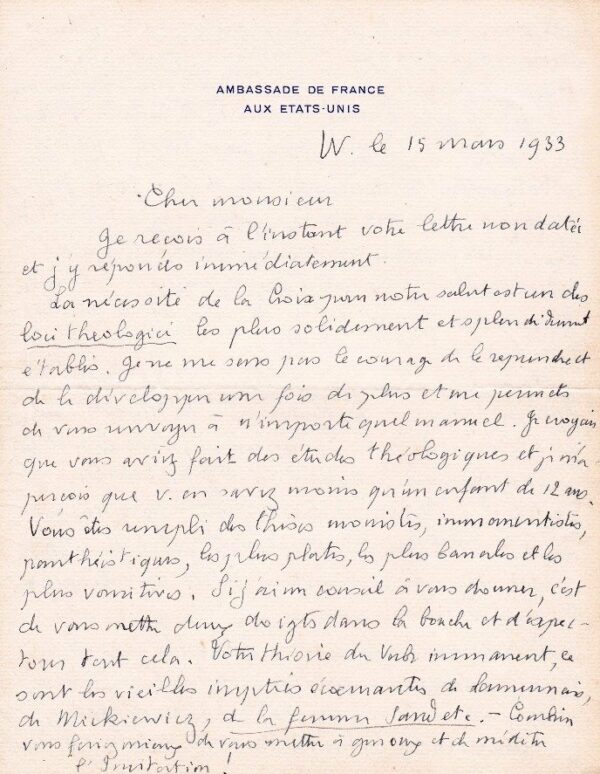 AMBASSADE DE FRANCE
AUX ETATS-UNIS
W. le 15 mars 1933
Cher monsieur
Je reçois à l'instant votre lettre non datée
et j'y réponds immédiatement.
La nécessité de la Croix pour notre salut est un des
loci theologici les plus solidement et splendidement
établis. Je ne me sens pas le courage de le reprendre et
de le développer une fois de plus et me permets
de vous renvoyer à n'importe quel manuel. Je croyais
que vous aviez fait des études théologiques et je m'a
perçois que v. en savez moins qu'un enfant de 12 ans.
Vous êtes rempli des thèses monistes, immanentistes,
panthéistiques, les plus plates, les plus banales et les
plus vomitives. Si j'ai un conseil à vous donner, c'est
de vous mettre deux doigts dans la bouche et d'expec-
torer tout cela. Votre théorie du Verbe immanent, ce
sont les vieilles inepties écœurantes de Lamennais,
de Mickiewicz, de la femme Sand etc. - Combien
vous feriez mieux de vous mettre à genoux et de méditer
l'Imitation !